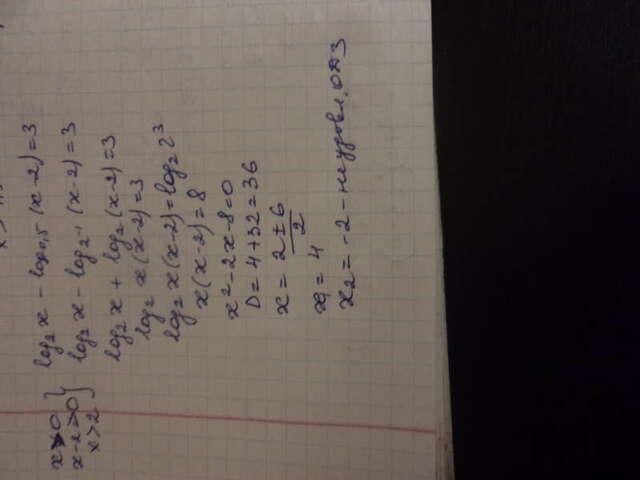 x>0
x-2>0
x>2
log₂ x - log₀,₅ (x-2)=3
log₂ x - log₂-₁ (x-2)=3
log₂ x + log₂ (x-2)=3
log₂ x(x-2)=3
log₂ x(x-2)=log₂ 2³
x(x-2)=8
x²-2x-8=0
D=4+32=36
x= 2±6
2
x₁= 4
x₂=-2 - не удовл. ОДЗ